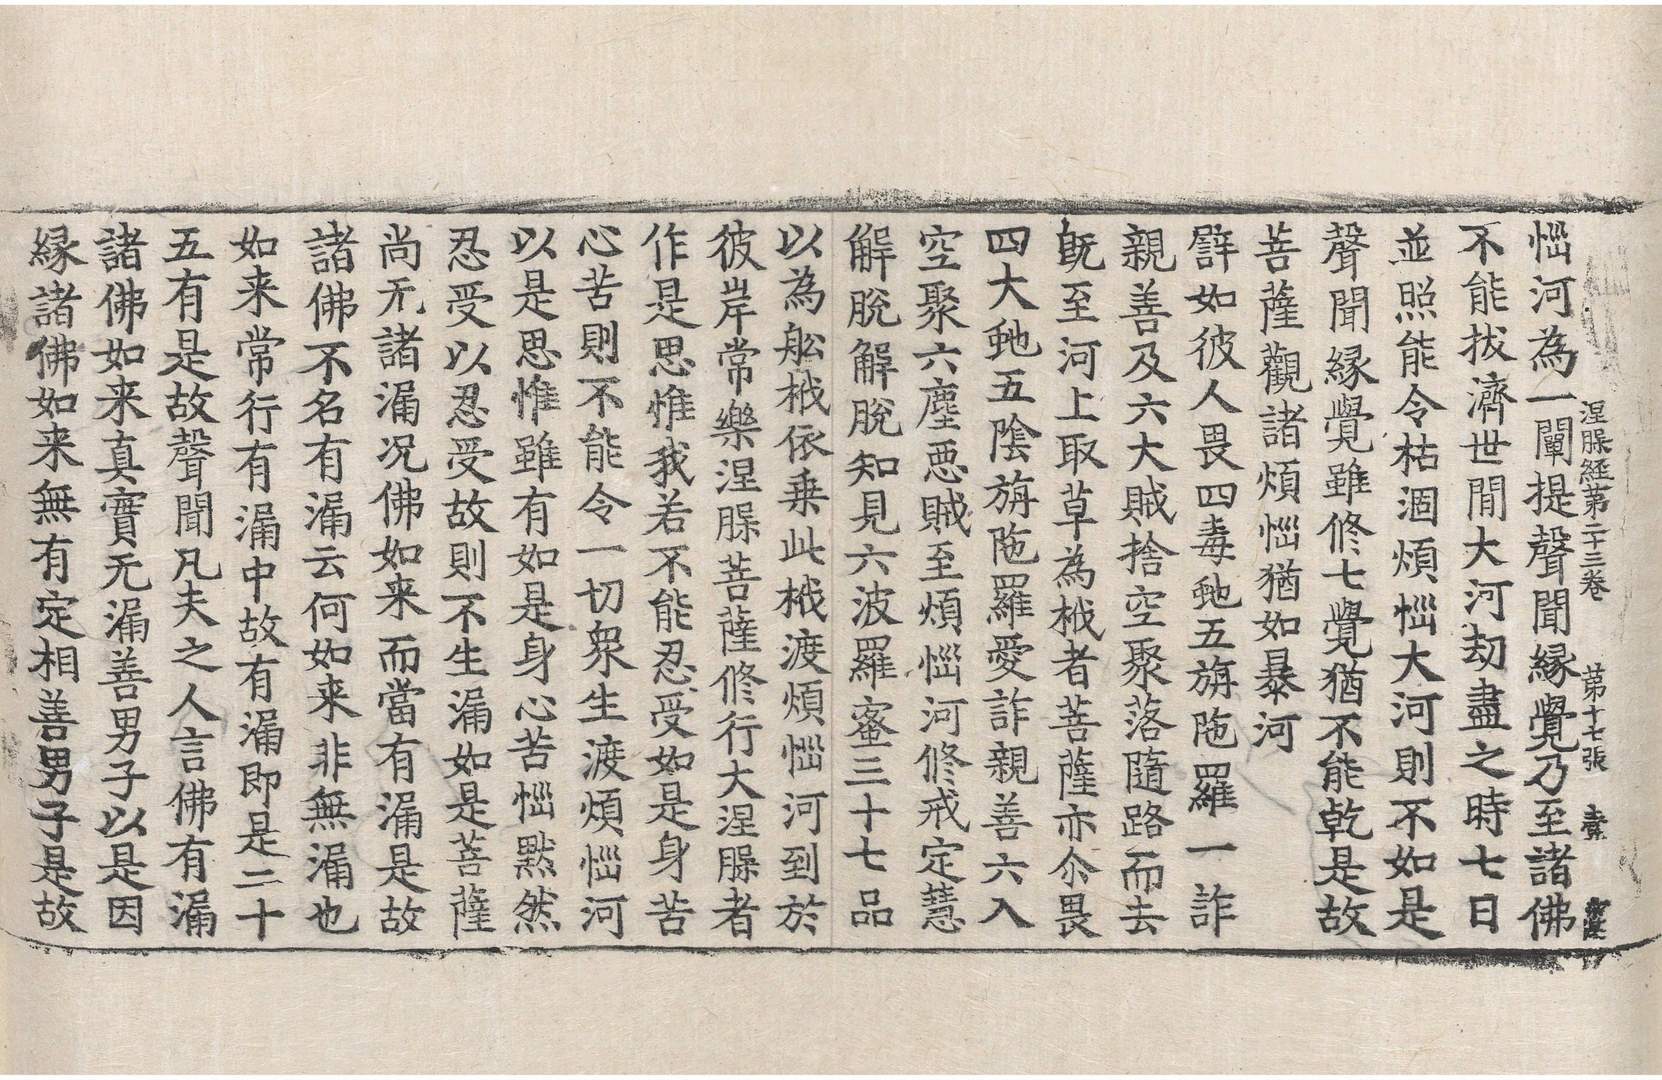 涅槃经第二十三卷 第十七張
惱河為一闡提聲聞縁覺乃至諸佛
不能拔濟世間大河劫盡之時七日
並照能令枯涸煩惱大河則不如是
聲聞縁覺雖修七覺猶不能乾是故
菩薩觀諸煩惱猶如暴河
譬如彼人畏四毒虵五旃陁羅一詐
親善及六大賊捨空聚落隨路而去
旣至河上取草為栰者菩薩亦尒畏
四大虵五陰旃陁羅愛詐親善六入
空聚六塵惡賊至煩惱河修戒定慧
解脫解脫知見六波羅蜜三十七品
以為舩栰依乗此栰渡煩惱河到於
彼岸常樂涅槃菩薩修行大涅槃者
作是思惟我若不能忍受如是身苦
心苦則不能令一切衆生渡煩惱河
以是思惟雖有如是身心苦惱默然
忍受以忍受故則不生漏如是菩薩
尚无諸漏况佛如来而當有漏是故
諸佛不名有漏云何如来非無漏也
如来常行有漏中故有漏即是二十
五有是故聲聞凡夫之人言佛有漏
諸佛如来真實无漏善男子以是因
縁諸佛如来無有定相善男子是故